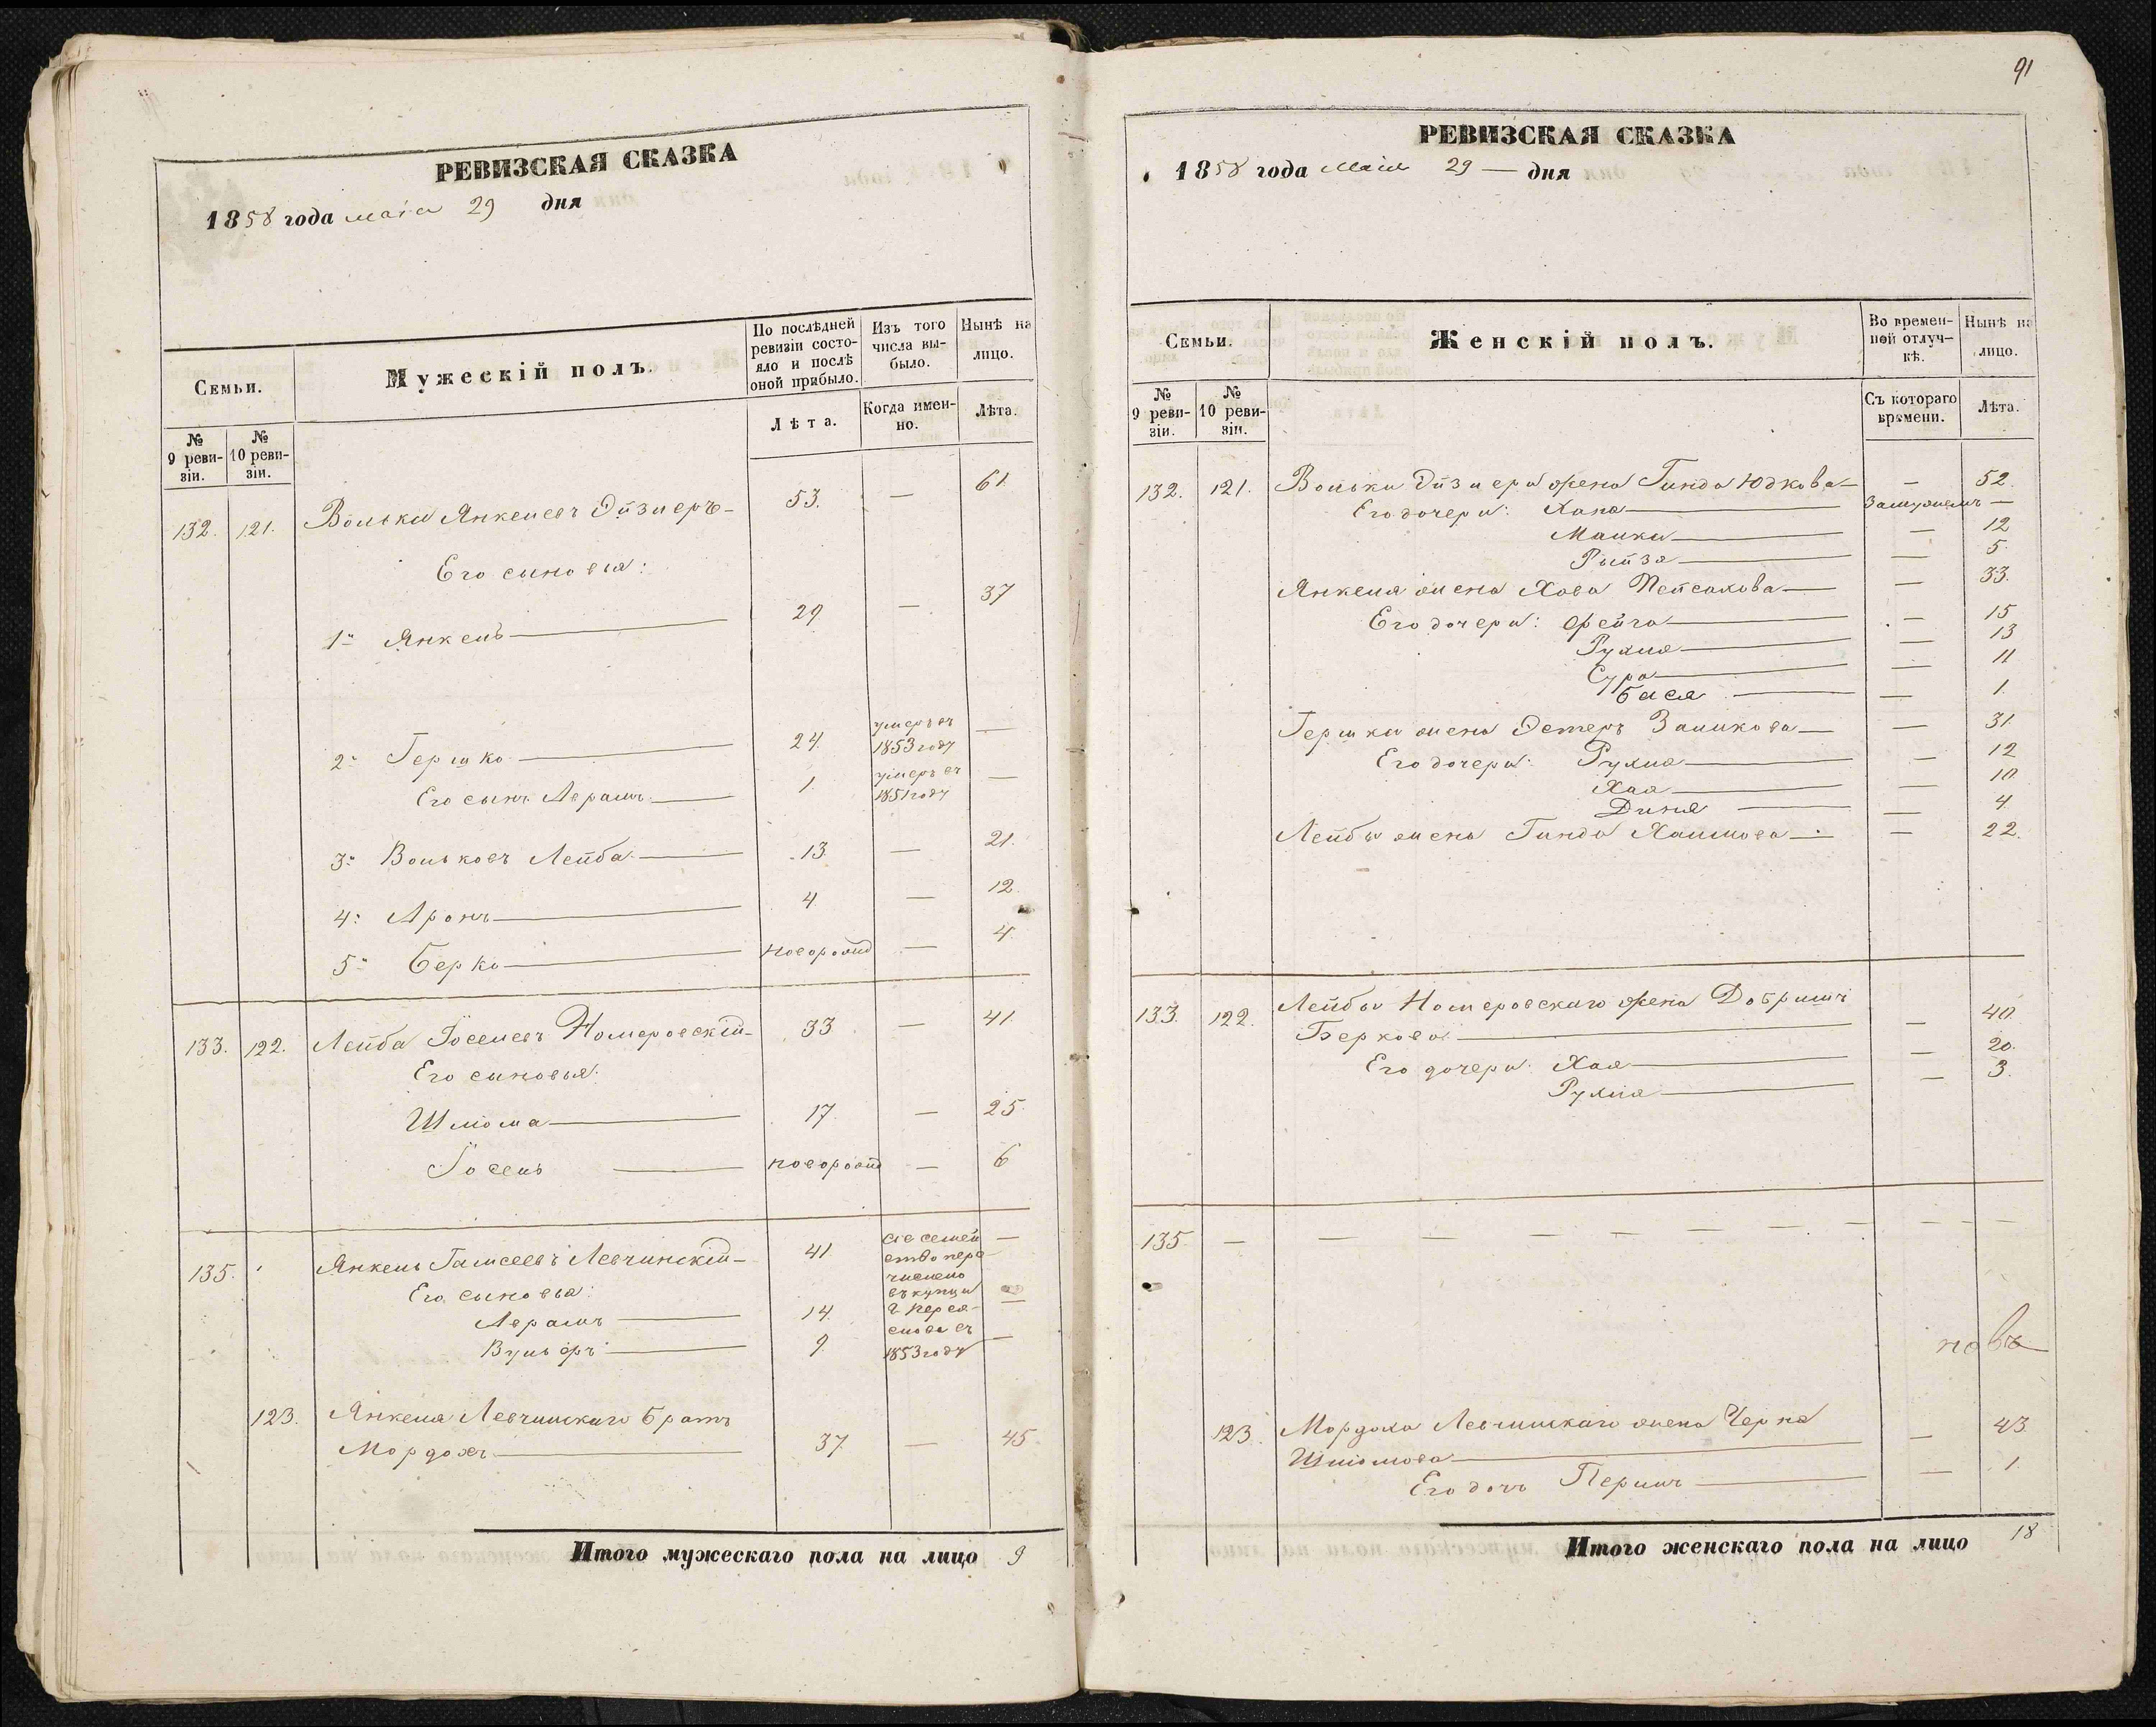 РЕВИЗСКАЯ СКАЗКА
1858 года маiа 29 дня
Семьи.
Мужескій полъ.
По послѣдней ревизіи состояло и послѣ оной прибыло.
Изъ того числа выбыло.
Нынѣ на лицо.
№ 9 ревизіи.
№ 10 ревизіи.
Лѣта.
Когда именно.
Лѣта.
132. 121. Волько Янкелевъ 53. — 61.
Его сыновья:
1й Янкель — 29 — 37
2й Гершко — 24. умеръ въ 1853 году —
Его сынъ Аврамъ — 1. умеръ въ 1851 году —
3й Вольковъ Лейба — 13. — 21.
4й Аронъ — 4 — 12.
5й Берко — новорожд — 4.
133. 122. Лейба Іоселевъ Номеровскій — 33 — 41.
Его сыновья:
Шліома — 17. — 25.
Іосель — новорожд — 6
135. Янкель Левчинскій — 41. сіе семейство перечислено въ купцы г. Переяслова въ 1853 году —
Его сыновья:
Аврамъ — 14. —
Вульфъ — 9. —
123. Янкеля Левчинскаго братъ
Мордохъ — 37. — 45.
Итого мужескаго пола на лицо 9
91
РЕВИЗСКАЯ СКАЗКА
1858 года маiя 29 — дня
Семьи.
Женскій полъ.
Во временной отлучкѣ.
Нынѣ на лицо.
№ 9 ревизіи.
№ 10 ревизіи.
Съ котораго времени.
Лѣта.
132. 121. Вольки жена Гинда Юдкова — — 52.
Его дочери: Хана — Замужемъ —
Малка — — 12
Рейза — — 5.
Янкеля жена Хава Пейсахова — — 33.
Его дочери: Фейга — — 15
Рухля — — 13
Сура — — 11
Бася — — 1.
Гершки жена Эстеръ — — 31.
Его дочери: Рухля — — 12
Хая — — 10
Диня — — 4.
Лейбы жена Гинда Хаимова — — 22.
133. 122. Лейбы Номеровскаго жена Добришъ
Беркова — — 40.
Его дочери: Хая — — 20.
Рухля — — 3.
135 — — — — — — — — — — —
новъ
123. Мордоха Левчинскаго жена Черна
Шліомова — — 43
Его дочь Перлъ — — 1
Итого женскаго пола на лицо 18